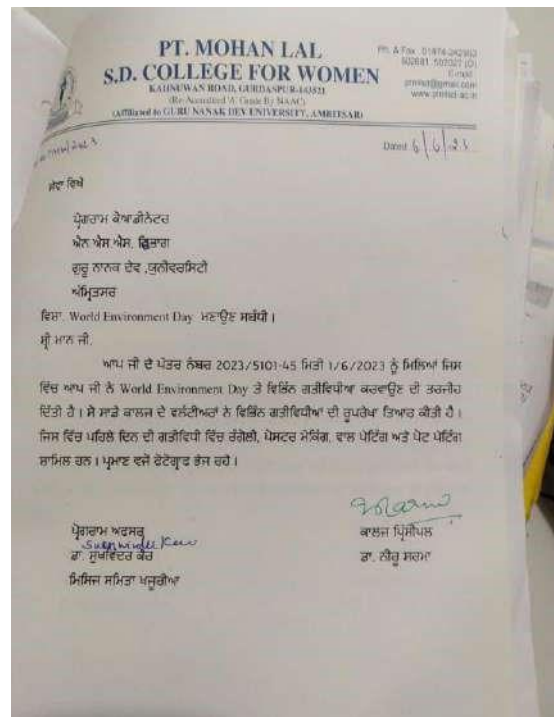 PT. MOHAN LAL
S.D. COLLEGE FOR WOMEN
KAHNUWAN ROAD, GURDASPUR-143521
(Re-Accredited 'A' Grade By NAAC)
(Affiliated to GURU NANAK DEV UNIVERSITY, AMRITSAR)
Ph. & Fax : 01874-242903
502681, 502027 (O)
E-mail:
Dated 6/6/23
ਸੇਵਾ ਵਿਖੇ
ਪ੍ਰੋਗਰਾਮ ਕੋਆਡੀਨੇਟਰ
ਐਨ ਐਸ.ਐਸ. ਵਿਭਾਗ
ਗੁਰੂ ਨਾਨਕ ਦੇਵ ,ਯੂਨੀਵਰਸਿਟੀ
ਅੰਮ੍ਰਿਤਸਰ
ਵਿਸ਼ਾ. World Environment Day ਮਣਾਉਣ ਸਬੰਧੀ।
ਸ਼੍ਰੀ ਮਾਨ ਜੀ,
ਆਪ ਜੀ ਦੇ ਪੱਤਰ ਨੰਬਰ 2023/5101-45 ਮਿਤੀ 1/6/2023 ਨੂੰ ਮਿਲਿਆਂ ਜਿਸ
ਵਿੱਚ ਆਪ ਜੀ ਨੇ World Environment Day ਤੇ ਵਿਭਿੰਨ ਗਤੀਵਿਧੀਆ ਕਰਵਾਉਣ ਦੀ ਤਰਜੀਹ
ਦਿੱਤੀ ਹੈ। ਸੋ ਸਾਡੇ ਕਾਲਜ ਦੇ ਵਲੰਟੀਅਰਾਂ ਨੇ ਵਿਭਿੰਨ ਗਤੀਵਿਧੀਆਂ ਦੀ ਰੂਪਰੇਖਾ ਤਿਆਰ ਕੀਤੀ ਹੈ।
ਜਿਸ ਵਿੱਚ ਪਹਿਲੇ ਦਿਨ ਦੀ ਗਤੀਵਿਧੀ ਵਿੱਚ ਰੰਗੋਲੀ, ਪੋਸਟਰ ਮੇਕਿੰਗ, ਵਾਲ ਪੇਟਿੰਗ ਅਤੇ ਪੋਟ ਪੇਟਿੰਗ
ਸ਼ਾਮਿਲ ਹਨ। ਪ੍ਰਮਾਣ ਵਜੋਂ ਫੋਟੋਗ੍ਰਾਫ ਭੇਜ ਰਹੇ।
ਪ੍ਰੋਗਰਾਮ ਅਫਸਰ
ਕਾਲਜ ਪ੍ਰਿੰਸੀਪਲ
Sukhwinder Kaur
ਡਾ. ਸੁਖਵਿੰਦਰ ਕੌਰ
ਡਾ. ਨੀਰੂ ਸ਼ਰਮਾ
ਮਿਸਿਜ ਸਮਿਤਾ ਖਜੂਰੀਆ